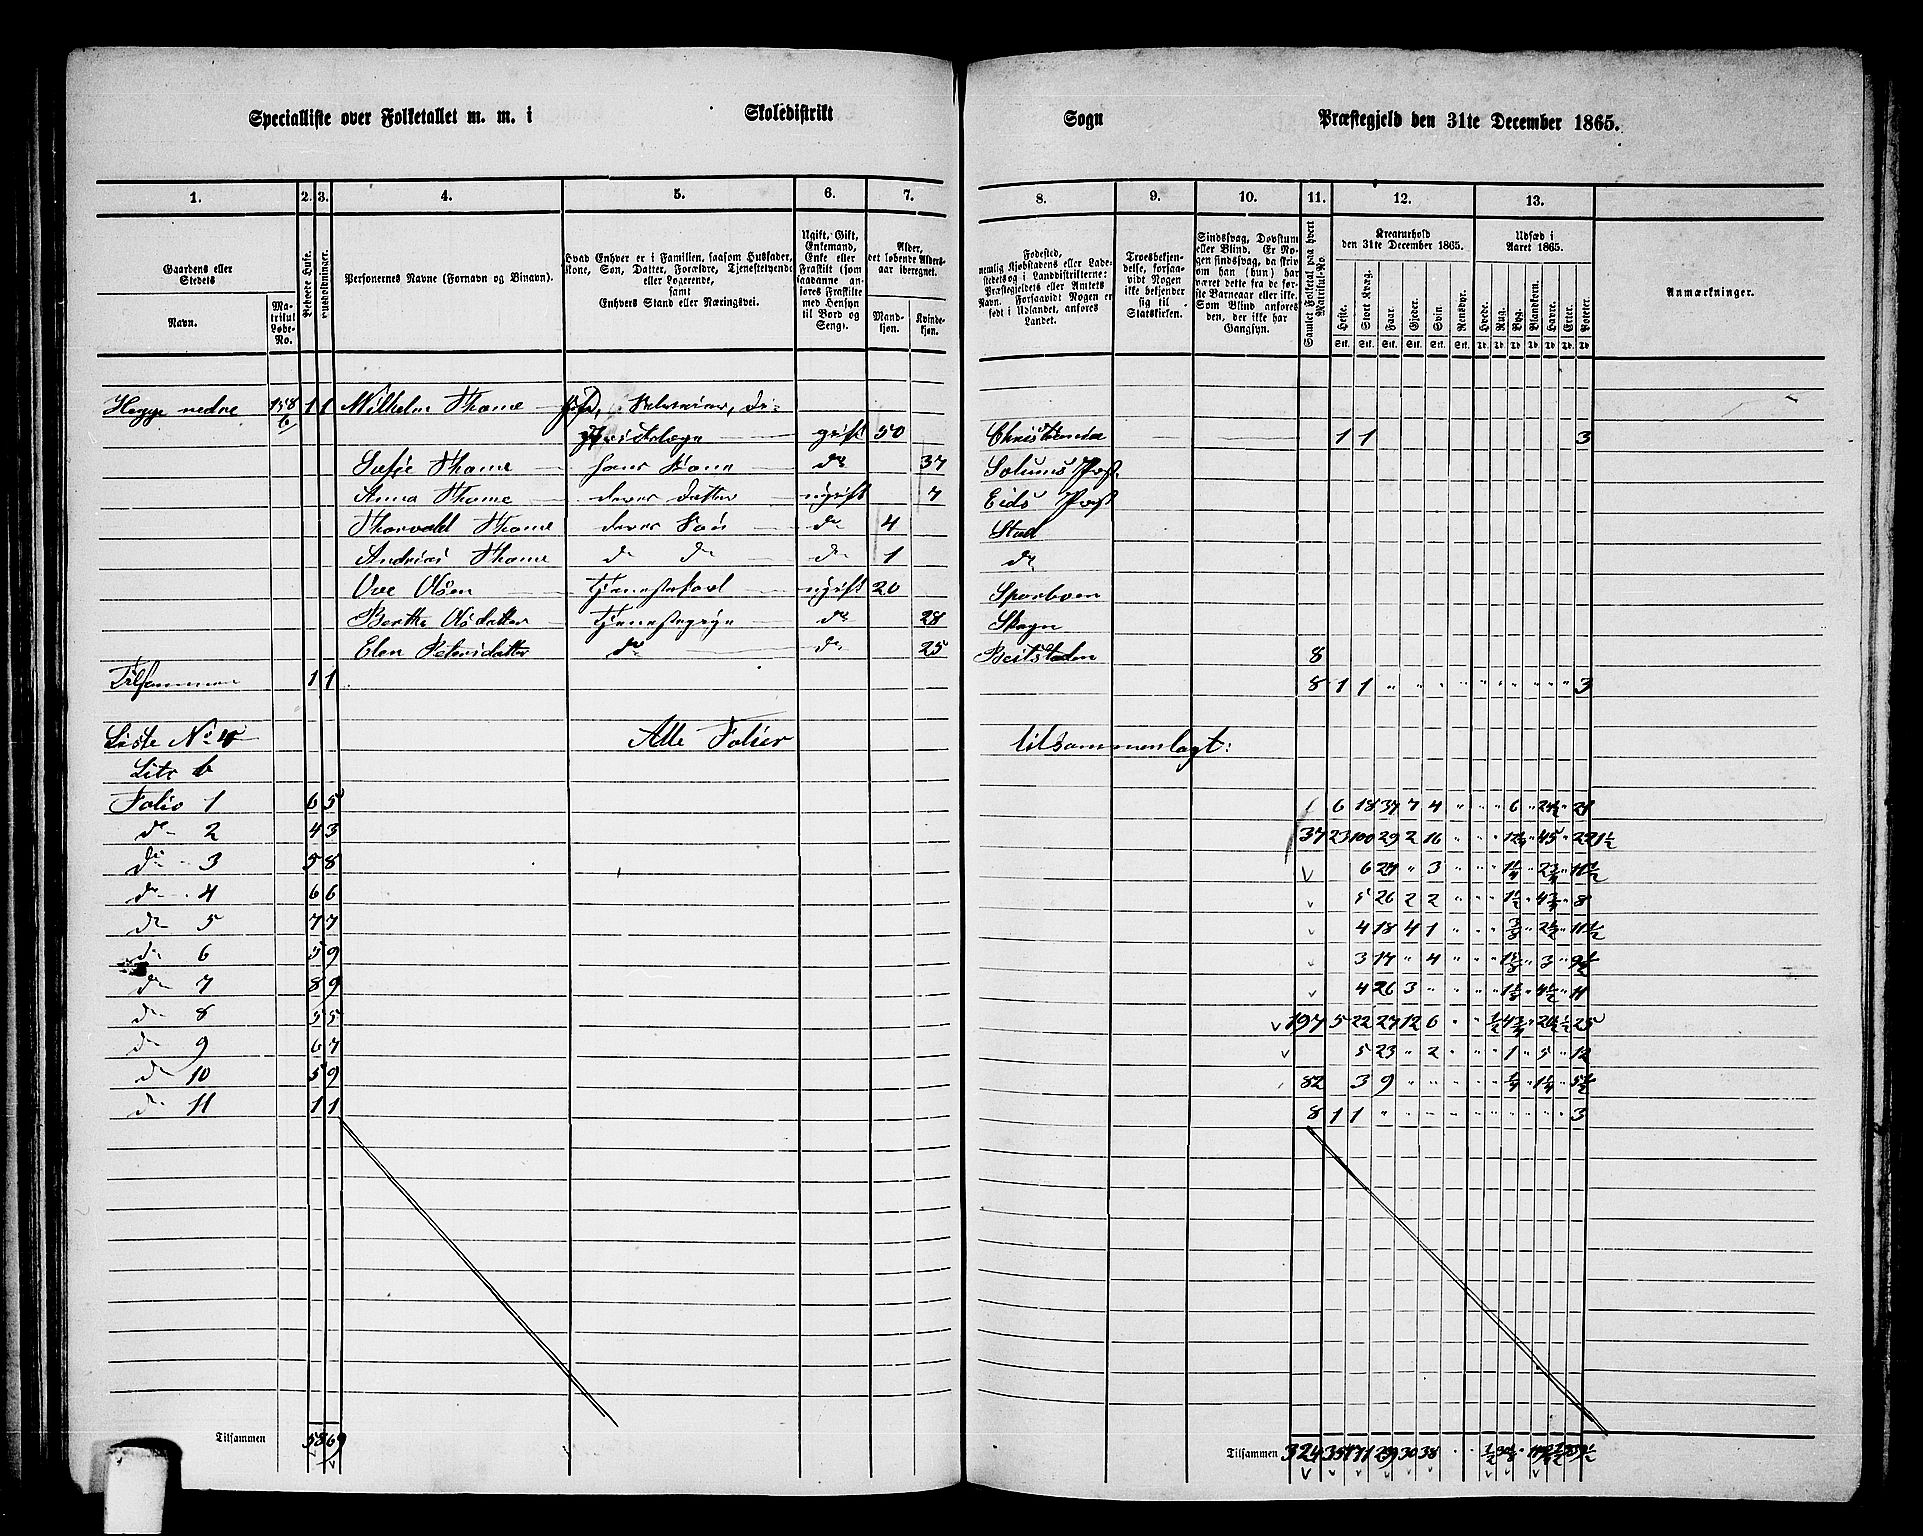 Specialliste over Folketallet m. m. i Skoledistrikt Sogn Præstegjeld den 31te December 1865.
1. 2. 3. 4. 5. 6. 7. 8. 9. 10. 11. 12. 13.
Gaardens eller Stedets Navn.
Matrikul Løbe-No.
Beboede Huse.
Huusholdninger.
Personernes Navne (Fornavn og Binavn).
Hvad Enhver er i Familien, saasom Husfader, Kone, Søn, Datter, Forældre, Tjenestetyende eller Logerende, samt Enhvers Stand eller Næringsvei.
Ugift, Gift, Enkemand, Enke eller Fraskilt (som saadanne anføres Fraskilte med Hensyn til Bord og Seng).
Alder, det løbende Aldersaar iberegnet.
Mandkjøn.
Kvindekjøn.
Fødested, nemlig Kjøbstadens eller Ladestedets og i Landdistrikterne: Præstegjeldets eller Amtets Navn. Forsaavidt Nogen er født i Udlandet, anføres Landet.
Troesbekjendelse, forsaavidt Nogen ikke bekjender sig til Statskirken.
Sindssvag, Døvstum eller Blind. Er Nogen sindssvag, da skriv om han (hun) har været dette fra de første Barneaar eller ikke. Som Blind anføres den, der ikke har Gangsyn.
Samlet Folketal paa hvert Matrikul-No.
Kreaturhold den 31te December 1865.
Heste. Stort Kvæg. Faar. Gjeder. Svin. Rensdyr.
Stk. Stk. Stk. Stk. Stk. Stk.
Udsæd i Aaret 1865.
Hvede. Rug. Byg. Blandkorn. Havre. Erter. Poteter.
Td. Td. Td. Td. Td. Td. Td.
Anmærkninger.
Hegge nedre 158 b 1 1 Wilhelm Thome
gift 50 Christiania 1 1 3
Sofie Thome hans Kone do 37 Solums Pgj.
Anna Thome deres Datter ugift 7 Eids Pgj
Thorvald Thome deres Søn do 4 Stod
Andreas Thome do do do 1 do
Ove Olsen Tjenestekarl ugift 20 Sparboen
Berthe Olsdatter Tjenestepige do 28 Skogn
Elen Petersdatter do do 25 Beitstaden 8
Tilsammen 1 1 8 1 1 " " " " " " " " " " 3
Liste No 4 Alle Folier tilsammenlagt:
Litr b
Folio 1 6 5 6 18 37 7 4 " " " 6 "
do 2 4 3 37 23 100 29 2 16 " " " " 45 "
do 3 5 8 6 " 3
do 4 6 6 5 26 2 2 " " " 1½ " " 8
do 5 7 7 4 18 4 1 " " " 3/8 " 2½ " 11½
do 6 5 9 3 17 " 4 " " " " 3 " 9½
do 7 8 9 4 26 3 " " " " " 4½ " 11
do 8 5 5 197 5 22 27 12 6 " " ½ 4¾ " ½ 25
do 9 6 7 5 23 " 2 " " " 1 " 5 " 12
do 10 5 9 82 3 9 " " " " " ¼ " 1¼ " 5½
do 11 1 1 8 1 1 " " " " " " " " " " 3
Tilsammen 58 69
Tilsammen 324 35 171 239 30 38 " " ½